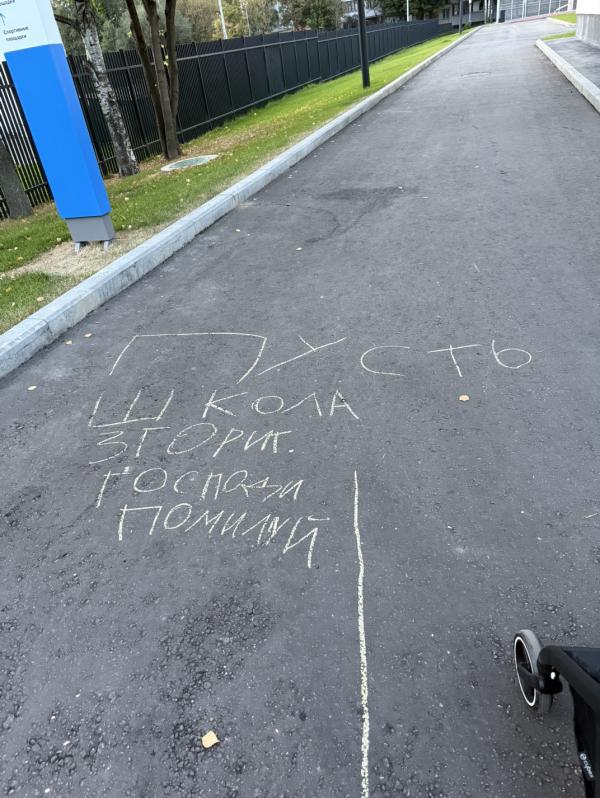 Спортивные
площадки
ПУСТЬ
ШКОЛА
ЗГОРИТ.
ГОСПОДИ
ПОМИЛУЙ